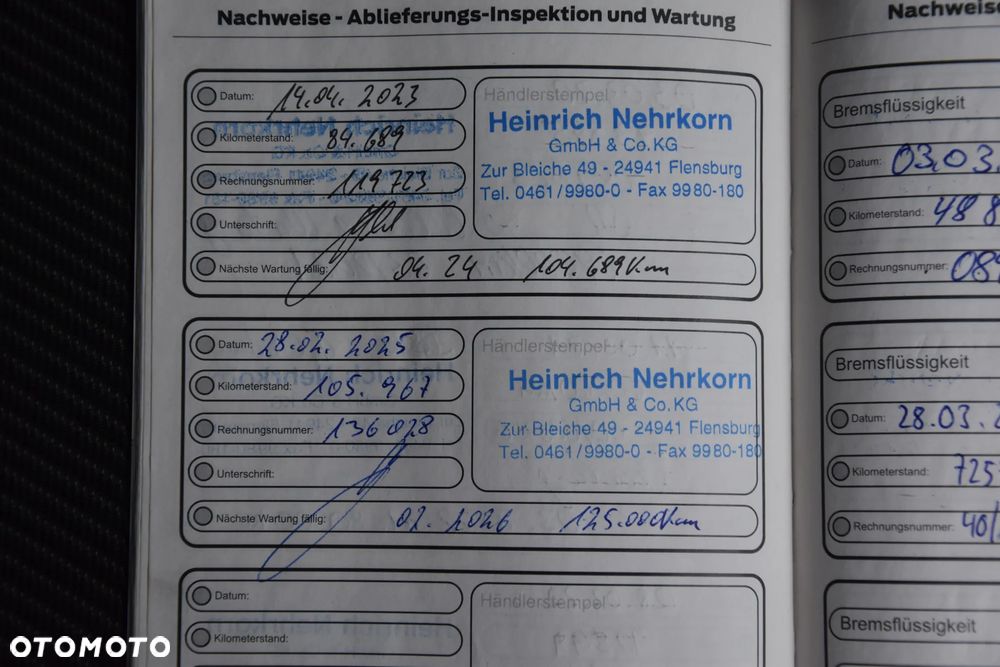 Nachweise - Ablieferungs-Inspektion und Wartung
Datum: 14.04. 2023
Kilometerstand: 84.689
Rechnungsnummer: 119723
Unterschrift:
Nächste Wartung fällig: 04. 24 104.689 km
Händlerstempel
Heinrich Nehrkorn
GmbH & Co. KG
Zur Bleiche 49 - 24941 Flensburg
Tel. 0461/9980-0 - Fax 9980-180
Datum: 28.02. 2025
Kilometerstand: 105. 967
Rechnungsnummer: 136028
Unterschrift:
Nächste Wartung fällig: 02. 2026 125.000km
Händlerstempel
Heinrich Nehrkorn
GmbH & Co. KG
Zur Bleiche 49 - 24941 Flensburg
Tel. 0461/9980-0 - Fax 9980-180
Datum:
Kilometerstand:
Händlerstempel
Nachweise
Bremsflüssigkeit
Datum: 03.03.
Kilometerstand: 48 8
Rechnungsnummer: 08
Bremsflüssigkeit
Datum: 28.03.
Kilometerstand: 725
Rechnungsnummer: 40/
Bremsflüssigkeit
OTOMOTO